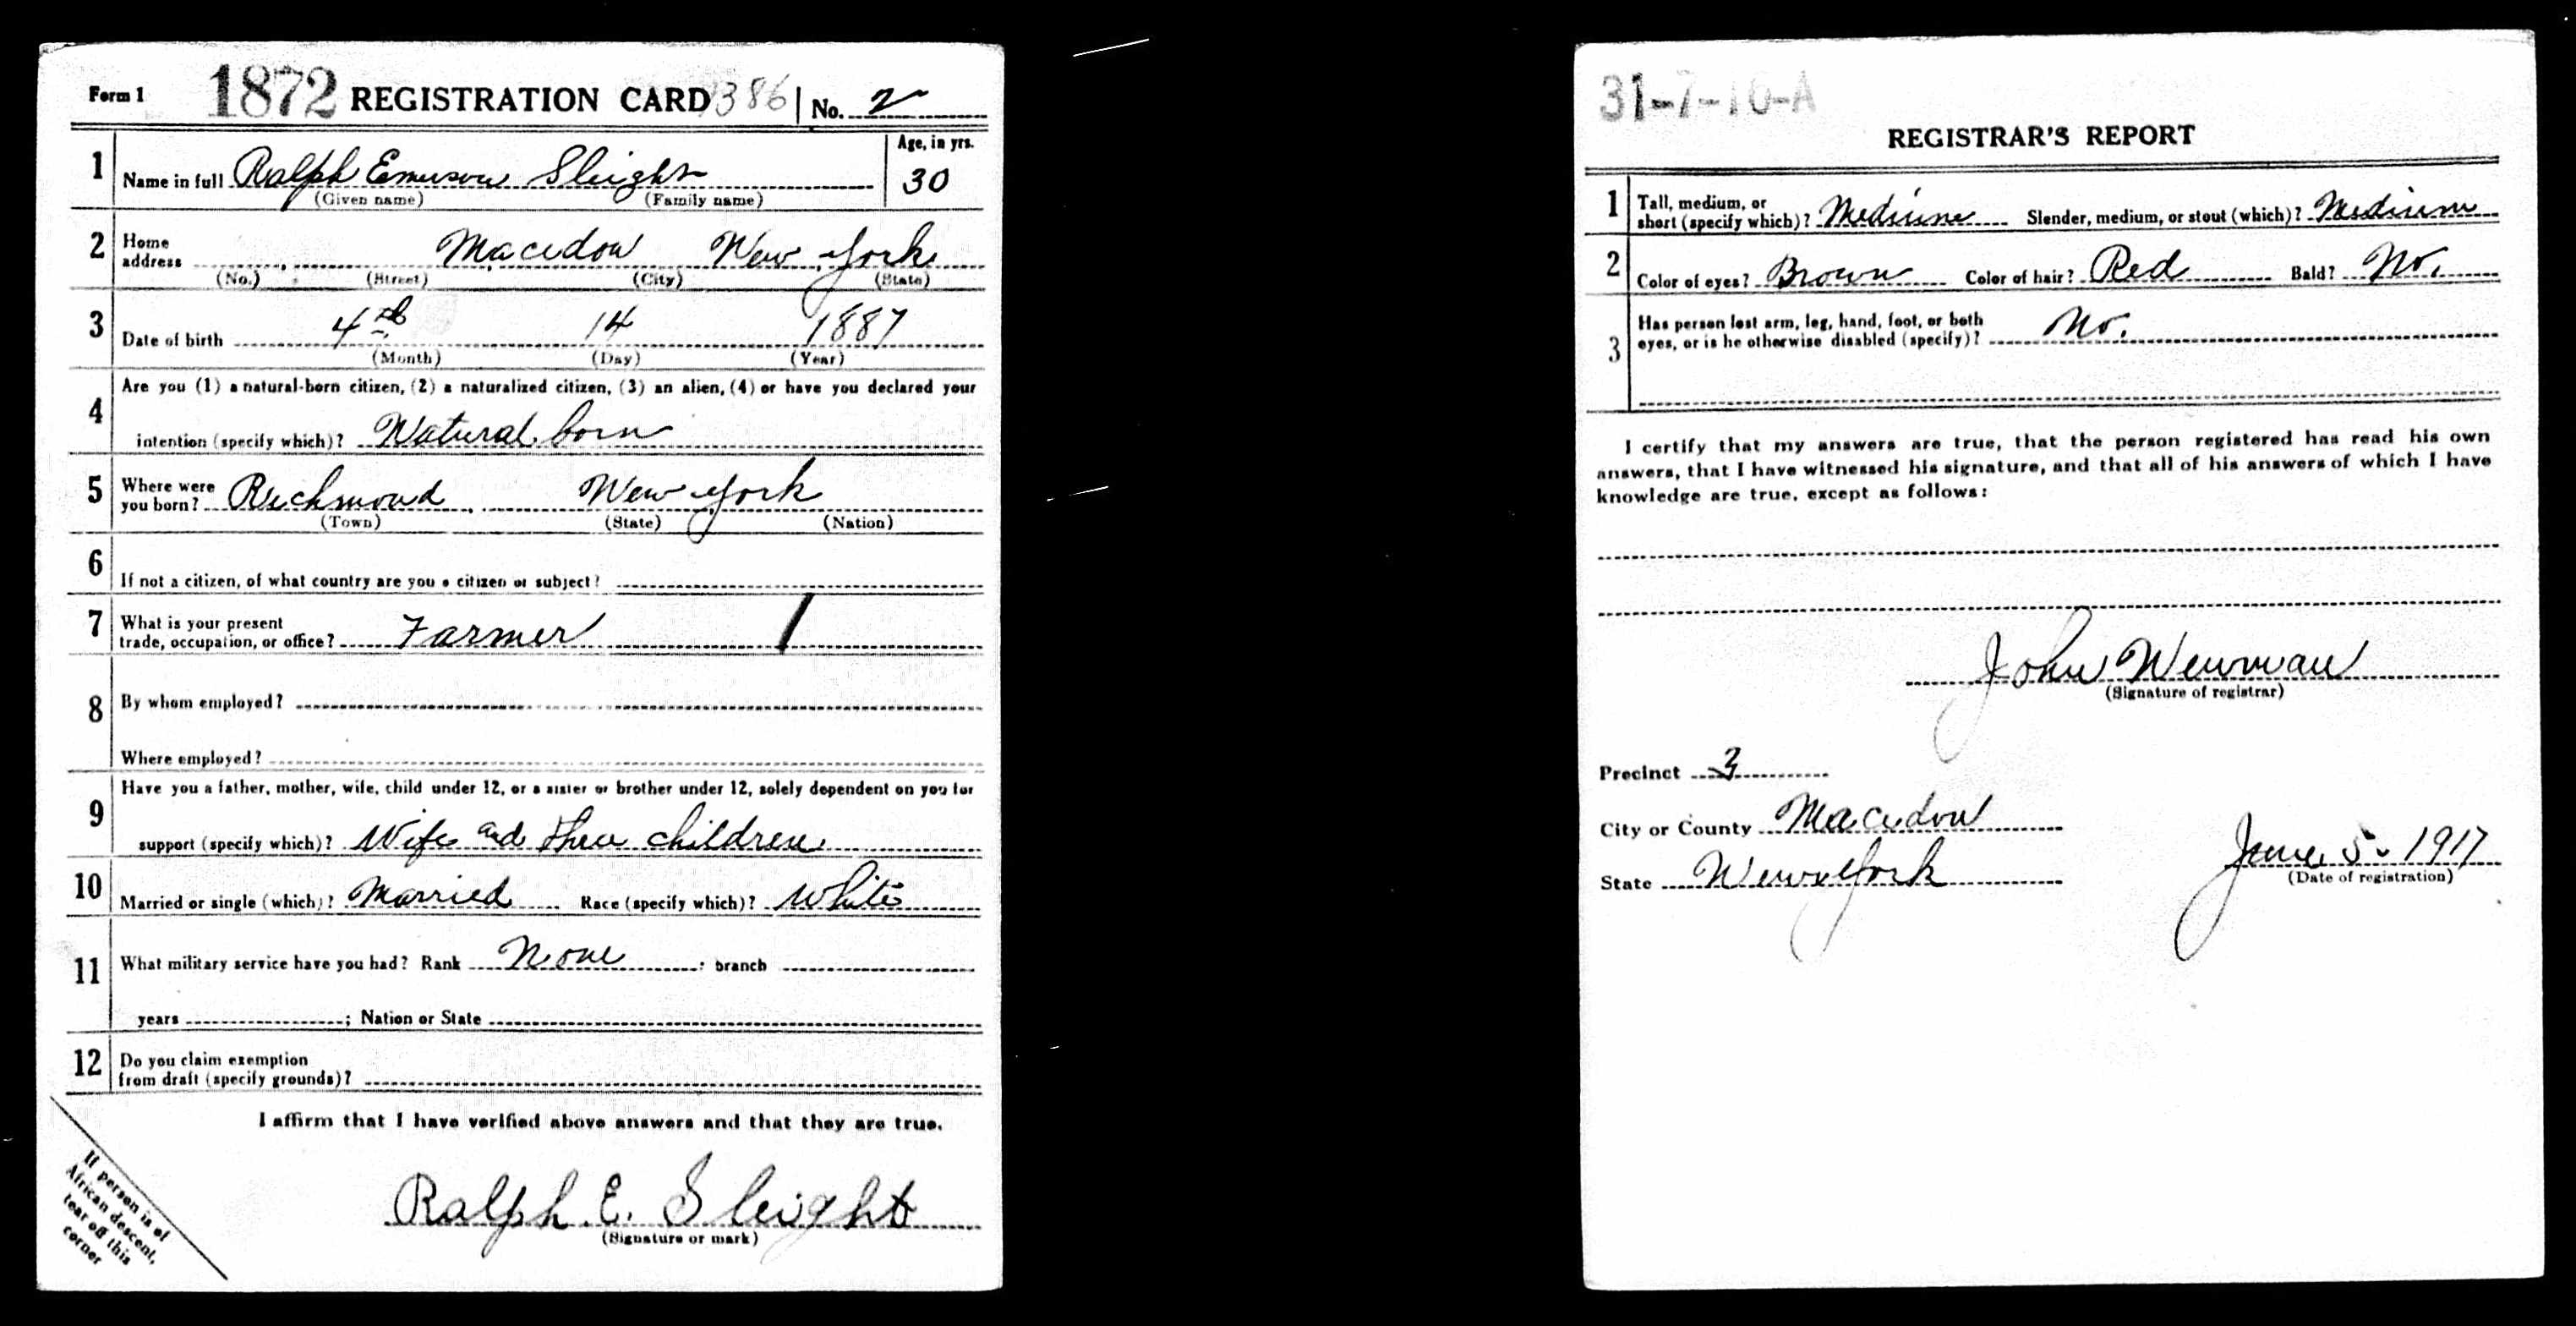 Form 1 1872 REGISTRATION CARD 386 No. 2
1 Name in full Ralph Emerson Sleight Age, in yrs. 30
(Given name) (Family name)
2 Home address Macedon New York
(No.) (Street) (City) (State)
3 Date of birth 4th 14 1887
(Month) (Day) (Year)
4 Are you (1) a natural-born citizen, (2) a naturalized citizen, (3) an alien, (4) or have you declared your
intention (specify which)? Natural born
5 Where were you born? Richmond New York
(Town) (State) (Nation)
6 If not a citizen, of what country are you a citizen or subject?
7 What is your present
trade, occupation, or office? Farmer
8 By whom employed?
Where employed?
9 Have you a father, mother, wife, child under 12, or a sister or brother under 12, solely dependent on you for
support (specify which)? Wife and three children
10 Married or single (which)? Married Race (specify which)? White
11 What military service have you had? Rank None ; branch
years ; Nation or State
12 Do you claim exemption
from draft (specify grounds)?
I affirm that I have verified above answers and that they are true.
Ralph E. Sleight
(Signature or mark)
If person is of
African descent,
tear off this
corner
31-7-10-A
REGISTRAR'S REPORT
1 Tall, medium, or
short (specify which)? Medium Slender, medium, or stout (which)? Medium
2 Color of eyes? Brown Color of hair? Red Bald? No.
3 Has person lost arm, leg, hand, foot, or both
eyes, or is he otherwise disabled (specify)? No.
I certify that my answers are true, that the person registered has read his own
answers, that I have witnessed his signature, and that all of his answers of which I have
knowledge are true, except as follows:
John Newman
(Signature of registrar)
Precinct 3
City or County Macedon
State New York
June 5. 1917
(Date of registration)